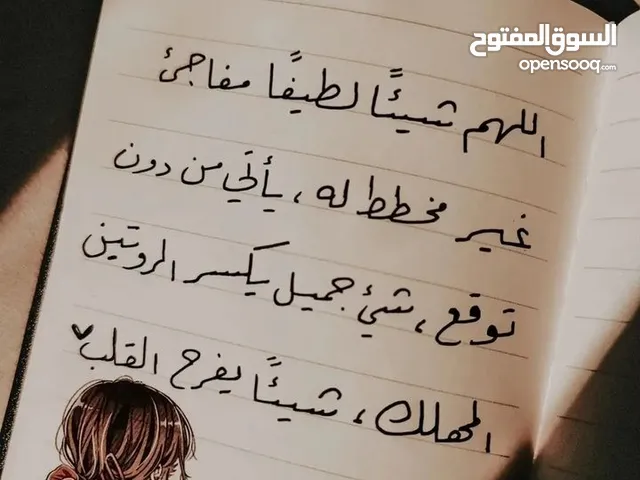 السوق المفتوح
opensooq.com
اللهم شيئًا لطيفًا مفاجئ
غير مخطط له ، يأتي من دون
توقع ، شيئ جميل يكسر الروتين
المهلك ، شيئًا يفرح القلب